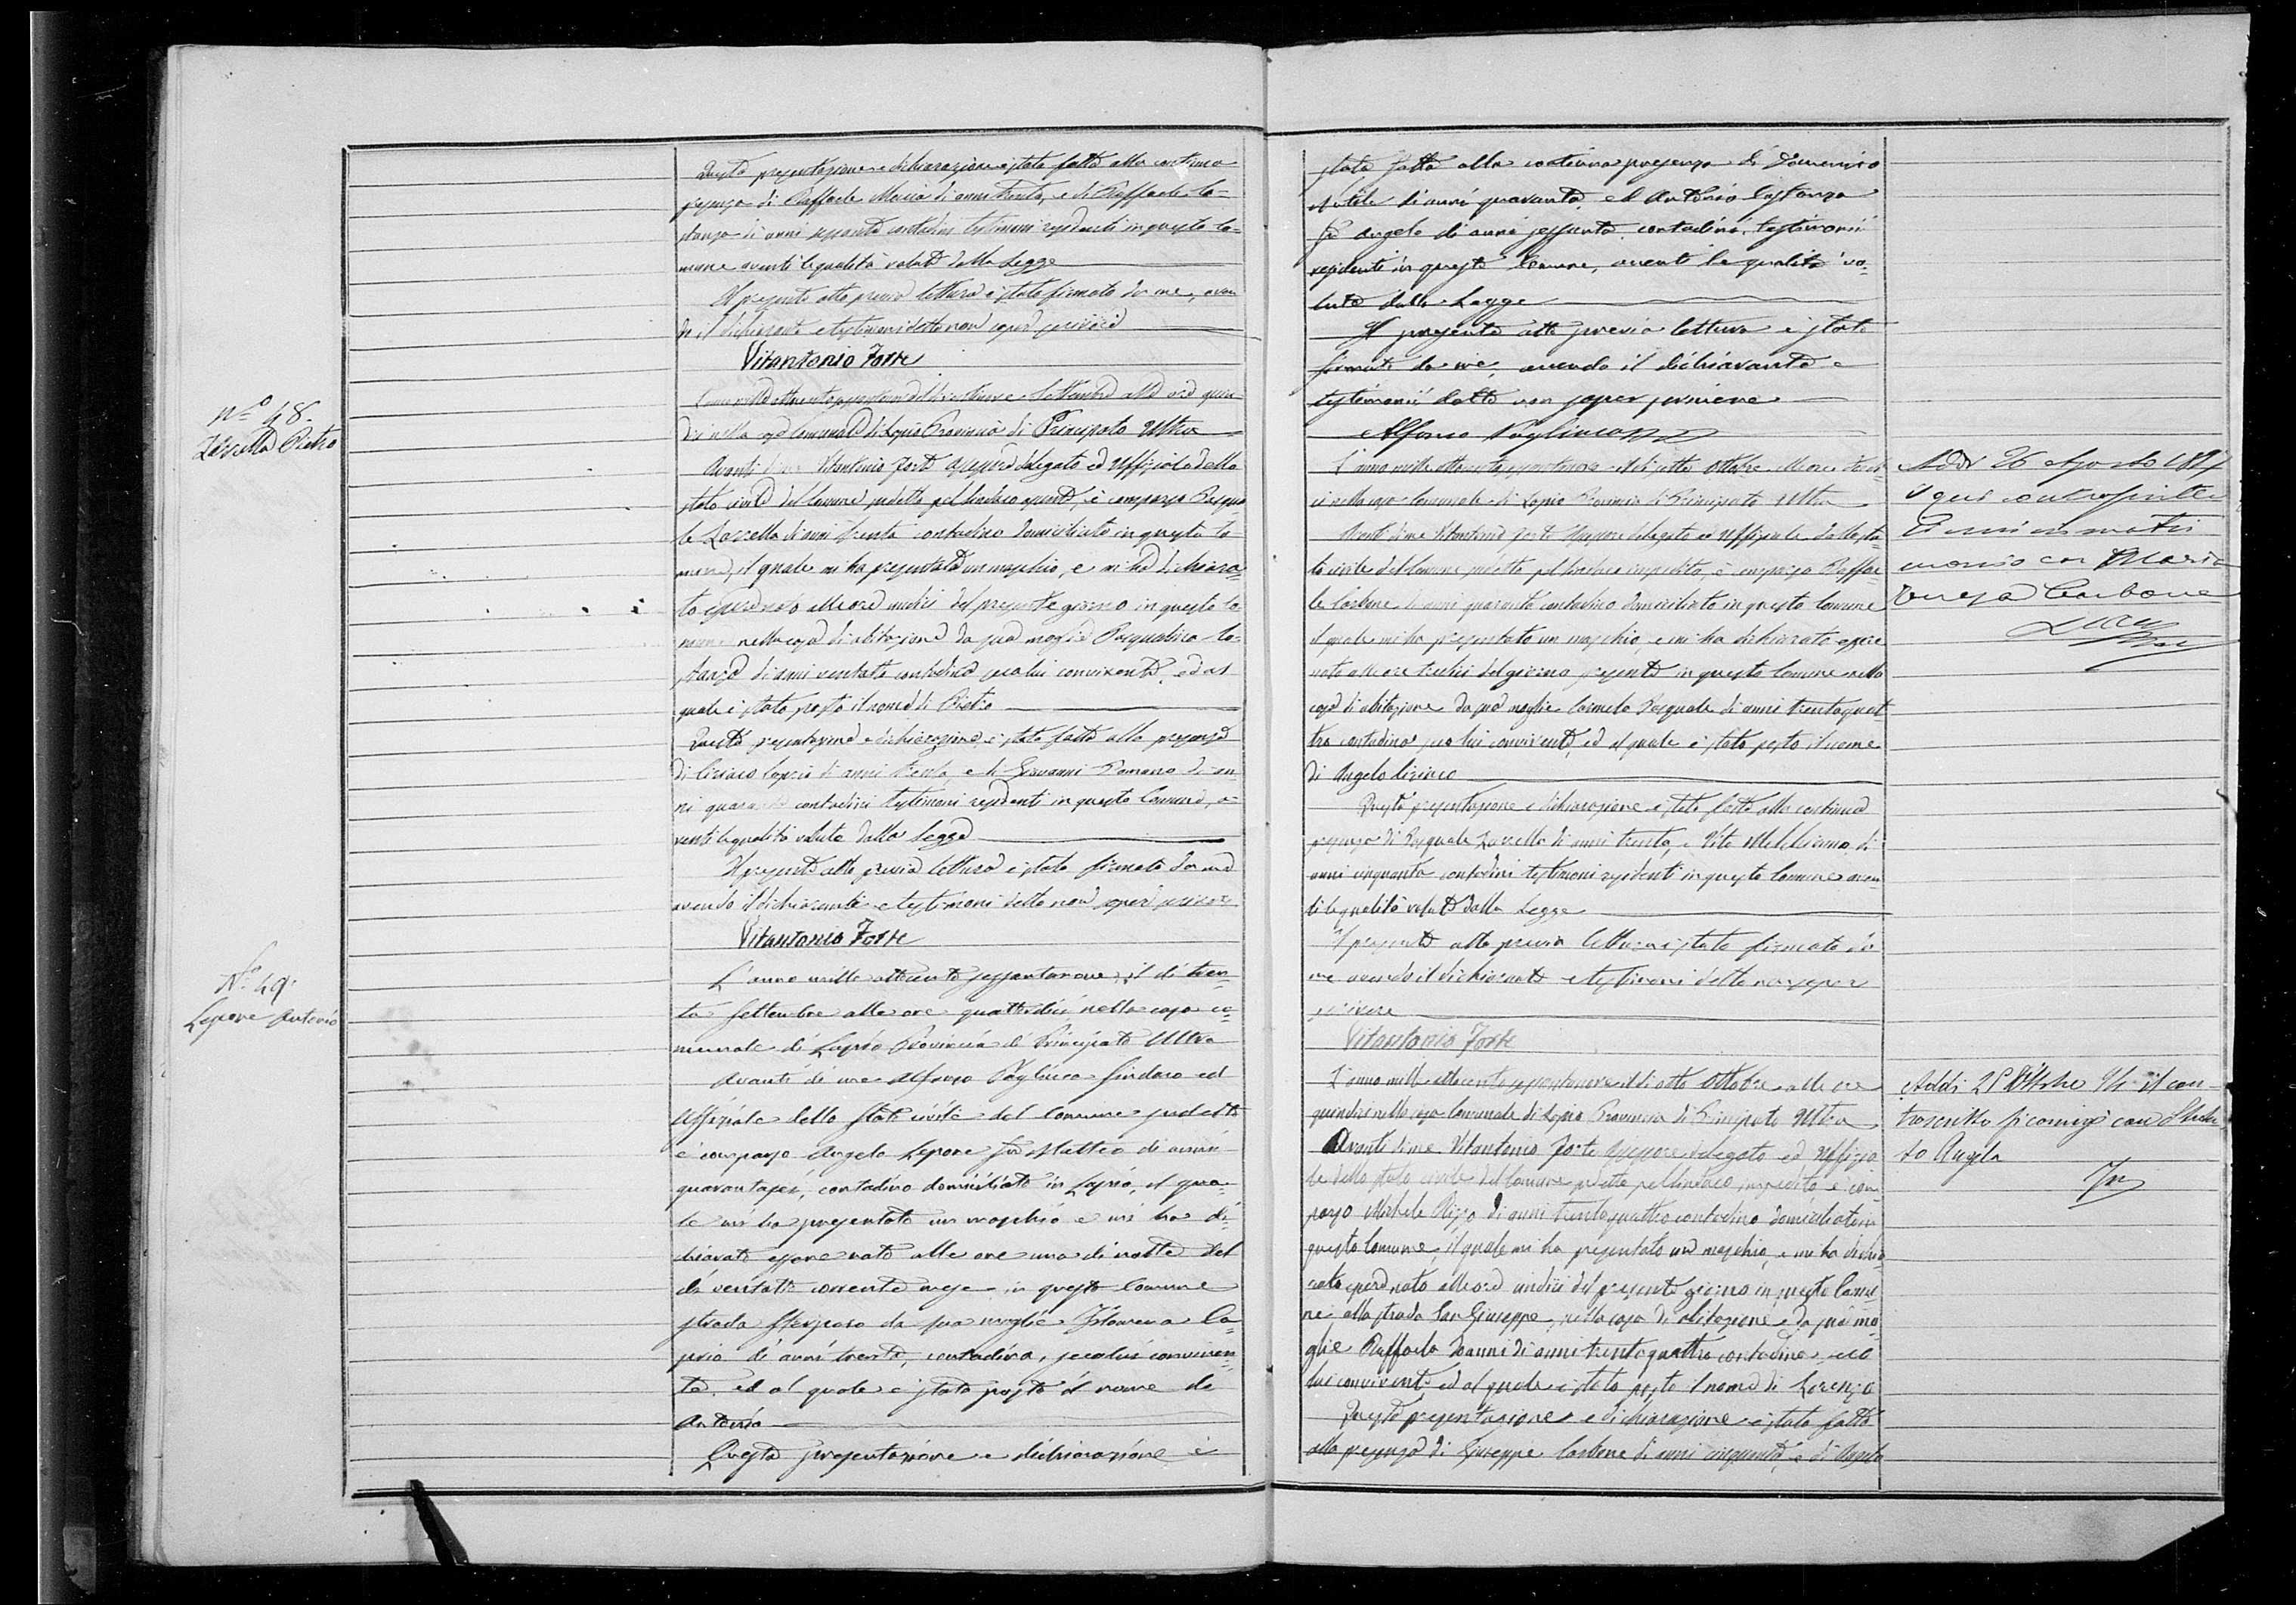 Questa presentazione e dichiarazione è stata fatta alla continua
presenza di Raffaele di anni trenta, e di Raffaele Co-
stanza di anni sessanta contadini testimoni residenti in questo Co-
mune aventi le qualità volute dalla Legge
Il presente atto previa lettura è stato firmato da me, aven
do il dichiarante e testimoni detto non saper scrivere
Vitantonio Forte
Nº 48.
Zarrella Pietro
L'anno mille ottocento sessantanove Settembre alle ore quin
dici nella casa Comunale di Lapio Provincia di Principato Ultra
Avanti di me Vitantonio Forte Assessore delegato ed Uffiziale dello
stato civile del Comune suddetto pel Sindaco assente, è comparso Pasqua
le Zarrella di anni trenta contadino domiciliato in questo Co
mune, il quale mi ha presentato un maschio, e mi ha dichiara-
to esser nato alle ore undici del presente giorno in questo Co
mune nella casa di abitazione da sua moglie Pasqualina Co-
stanza di anni ventotto contadina seco lui convivente, ed al
quale è stato posto il nome di Pietro
Questa presentazione e dichiarazione è stata fatta alla presenza
di Ciriaco Caprio di anni trenta e di Giovanni Romano di an
ni quaranta contadini testimoni residenti in questo Comune, a-
venti le qualità volute dalla Legge
Il presente atto previa lettura è stato firmato da me
avendo il dichiarante e testimoni detto non saper scrivere
Vitantonio Forte
Nº 49.
Lepore Antonio
L'anno mille ottocento sessantanove, il dì tren-
ta Settembre alle ore quattordici nella casa co-
munale di Lapio Provincia di Principato Ultra
Avanti di me Alfonso Pagliuca Sindaco ed
Uffiziale dello Stato civile del Comune suddetto
è comparso Angelo Lepore fu Matteo di anni
quarantasei, contadino domiciliato in Lapio, il qua-
le mi ha presentato un maschio e mi ha di-
chiarato essere nato alle ore una di notte del
dì ventotto corrente mese in questo Comune
strada da sua moglie Filomena Ca-
prio di anni trenta, contadina, secolui conviven-
te, ed al quale è stato posto il nome di
Antonio
Questa presentazione e dichiarazione è
stata fatta alla continua presenza di Domenico
di anni quaranta, e di Antonio Costanza
fu Angelo di anni sessanta, contadini, testimonii
residenti in questo Comune, aventi le qualità vo-
lute dalla Legge
Il presente atto previa lettura è stato
firmato da me, avendo il dichiarante e
testimonii detto non saper scrivere
Alfonso Pagliuca
L'anno mille ottocento sessantanove il dì sette Ottobre alle ore
nella casa Comunale di Lapio Provincia di Principato Ultra
Avanti di me Vitantonio Forte Assessore delegato ed Uffiziale dello sta
to civile del Comune suddetto pel Sindaco impedito, è comparso Raffae
le Carbone di anni quaranta contadino domiciliato in questo Comune
il quale mi ha presentato un maschio, e mi ha dichiarato essere
nato alle ore tredici del giorno presente in questo Comune nella
casa di abitazione da sua moglie Carmela Pasquale di anni trentaquat
tro contadina seco lui convivente, ed al quale è stato posto il nome
di Angelo Ciriaco
Questa presentazione e dichiarazione è stata fatta alla continua
presenza di Pasquale Zarrella di anni trenta, e Vito di
anni cinquanta contadini testimoni residenti in questo Comune aven
ti le qualità volute dalla Legge
Il presente atto previa lettura è stato firmato da
me avendo il dichiarante e testimoni detto non saper
scrivere
Vitantonio Forte
L'anno mille ottocento sessantanove il dì otto Ottobre alle ore
quindici nella casa Comunale di Lapio Provincia di Principato Ultra
Avanti di me Vitantonio Forte Assessore delegato ed Uffizia
le dello stato civile del Comune suddetto pel Sindaco impedito è com-
parso Michele Rizzo di anni trentaquattro contadino domiciliato in
questo Comune, il quale mi ha presentato un maschio, e mi ha dichia
rato esser nato alle ore undici del presente giorno in questo Comu
ne alla strada San Giuseppe, nella casa di abitazione da sua mo-
glie Raffaela Ioanni di anni trentaquattro contadina seco
lui convivente, ed al quale è stato posto il nome di Lorenzo
Questa presentazione e dichiarazione è stata fatta
alla presenza di Giuseppe Carbone di anni cinquanta, e di Angelo
Addì 26 Agosto
il qui controscritto
si unì in matri
monio con Maria
Teresa Carbone
Addì Ottobre il con-
troscritto si coniugò con
Angela